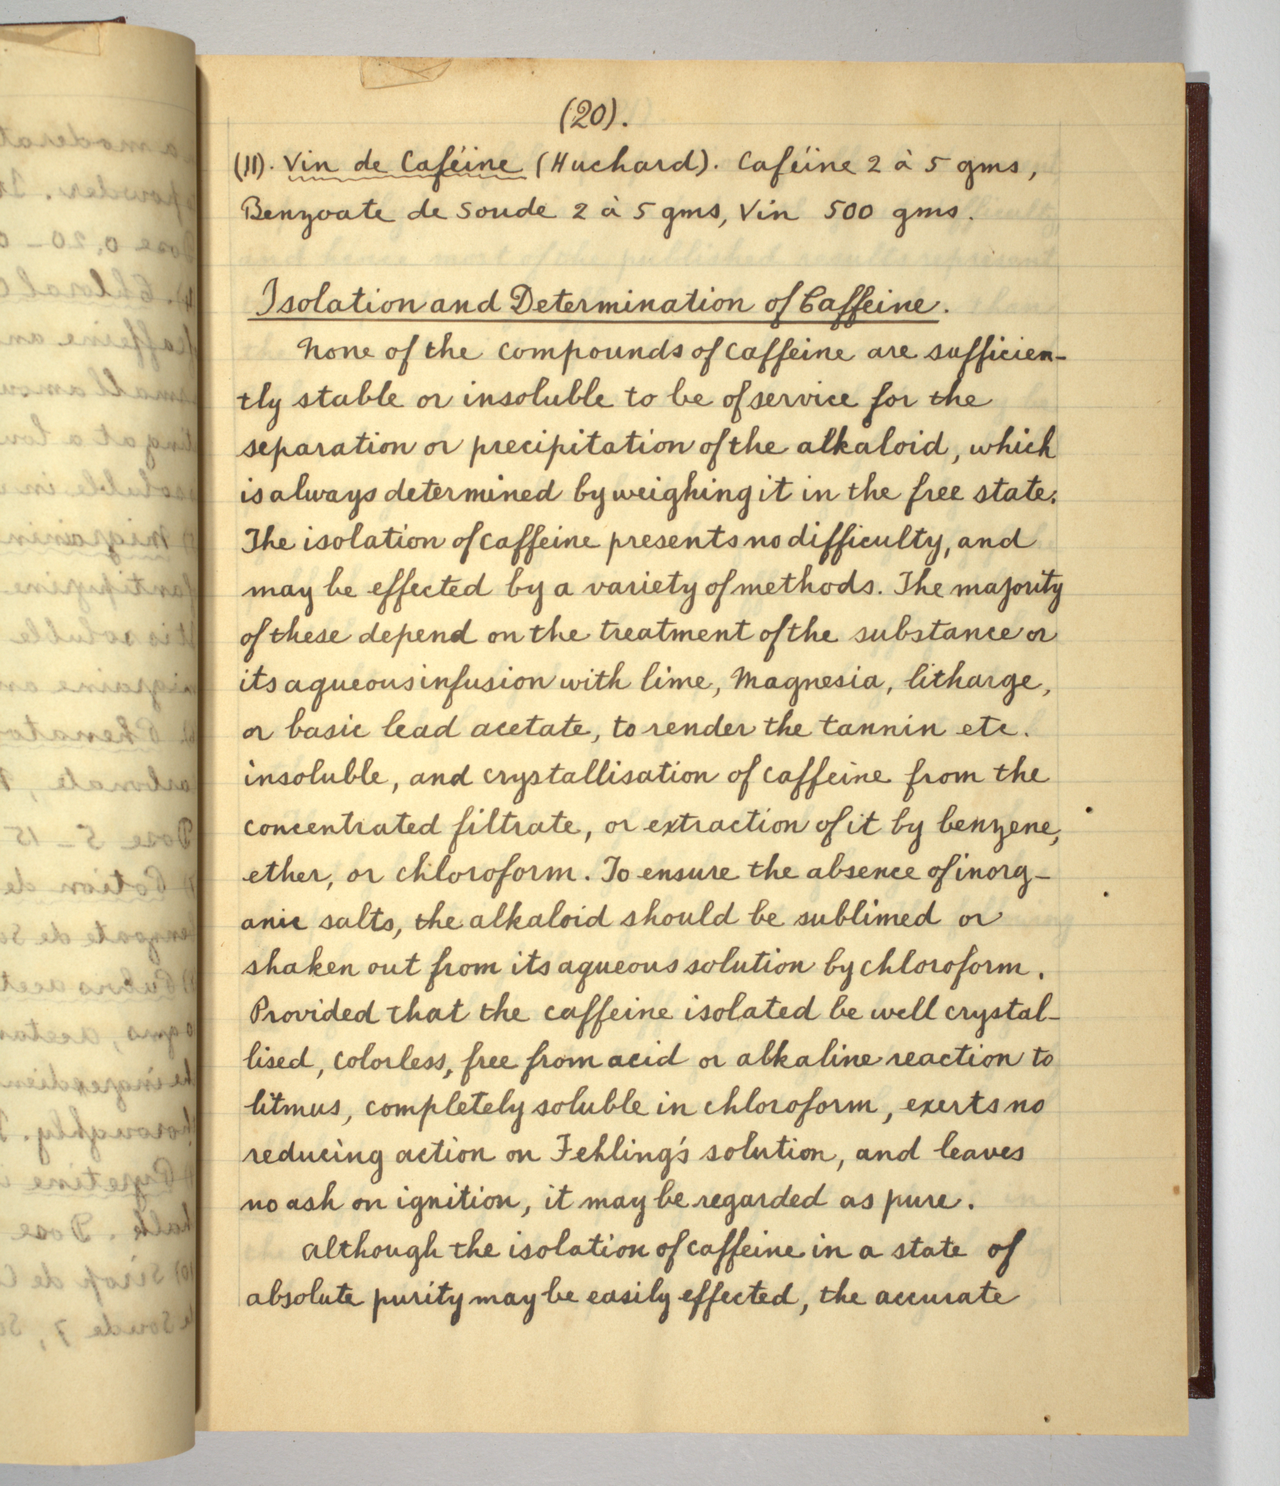 (20).
(11). Vin de Caféine (Huchard). Caféine 2 à 5 gms,
Benzoate de Soude 2 à 5 gms, Vin 500 gms.
Isolation and Determination of Caffeine.
None of the compounds of caffeine are sufficien-
tly stable or insoluble to be of service for the
separation or precipitation of the alkaloid, which
is always determined by weighing it in the free state.
The isolation of caffeine presents no difficulty, and
may be effected by a variety of methods. The majority
of these depend on the treatment of the substance or
its aqueous infusion with lime, Magnesia, litharge,
or basic lead acetate, to render the tannin etc.
insoluble, and crystallisation of caffeine from the
concentrated filtrate, or extraction of it by benzene,
ether, or chloroform. To ensure the absence of inorg-
anic salts, the alkaloid should be sublimed or
shaken out from its aqueous solution by chloroform.
Provided that the caffeine isolated be well crystal-
lised, colorless, free from acid or alkaline reaction to
litmus, completely soluble in chloroform, exerts no
reducing action on Fehling's solution, and leaves
no ash on ignition, it may be regarded as pure.
Although the isolation of caffeine in a state of
absolute purity may be easily effected, the accurate